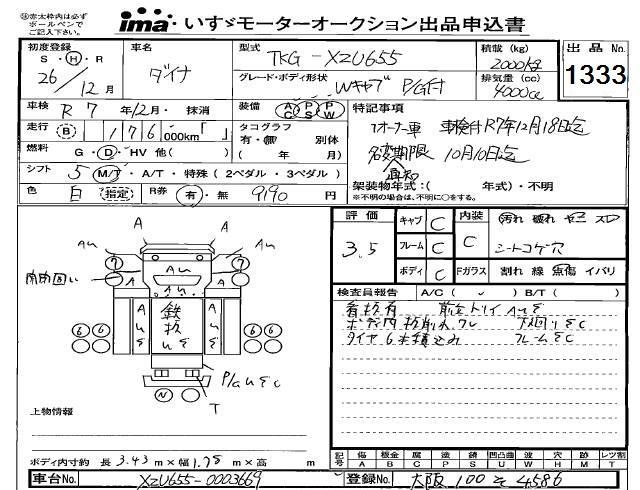 ㊟赤太枠内は必ず
ボールペンで
ご記入下さい。
ima いすゞモーターオークション出品申込書
初度登録 車名 型式 TKG-XZU655 積載 (kg) 2000kg 出品No.
S・H・R 26/12月 ダイナ グレード・ボディ形状 Wキャブ P/G付 排気量 (cc) 4000cc 1333
車検 R 7年12月・抹消 装備 AC PS PW 特記事項
走行 B 176,000km「 」 タコグラフ 1オーナー車 車検付R7年12月18日迄
有・無 別体
燃料 G・D・HV 他( ) ( 年 月) 名変期限 10月10日迄
シフト 5 M/T・A/T・特殊 (2ペダル・3ペダル) 架装物年式:( 年式)・不明
色 白 指定 R券 有・無 9190円 ※不明の場合は、不明に○をする。
評価 3.5 キャブ C 内装 C 汚れ 破れ ヤニ スレ
フレーム C シートコゲ穴
ボディ C Fガラス 割れ 線 点傷 イバリ
検査員報告 A/C( ✓ ) B/T( )
看板有
ボデ内板削れワレ 下廻りEC
タイヤ6本積込み フレームEC
AU A A AU
7 7
A AU A
AUE 鉄板UE AUE
6 6 6 6
P/GUEC
N T
上物情報
記号 傷A 板金B 腐C 塗P 錆S 凹凸曲U 波W 穴H 欠M レツ割T
ボディ内寸約 長 3.43m×幅 1.78m×高 m
車台No. XZU655-0003669 登録No. 大阪 100 せ 4586